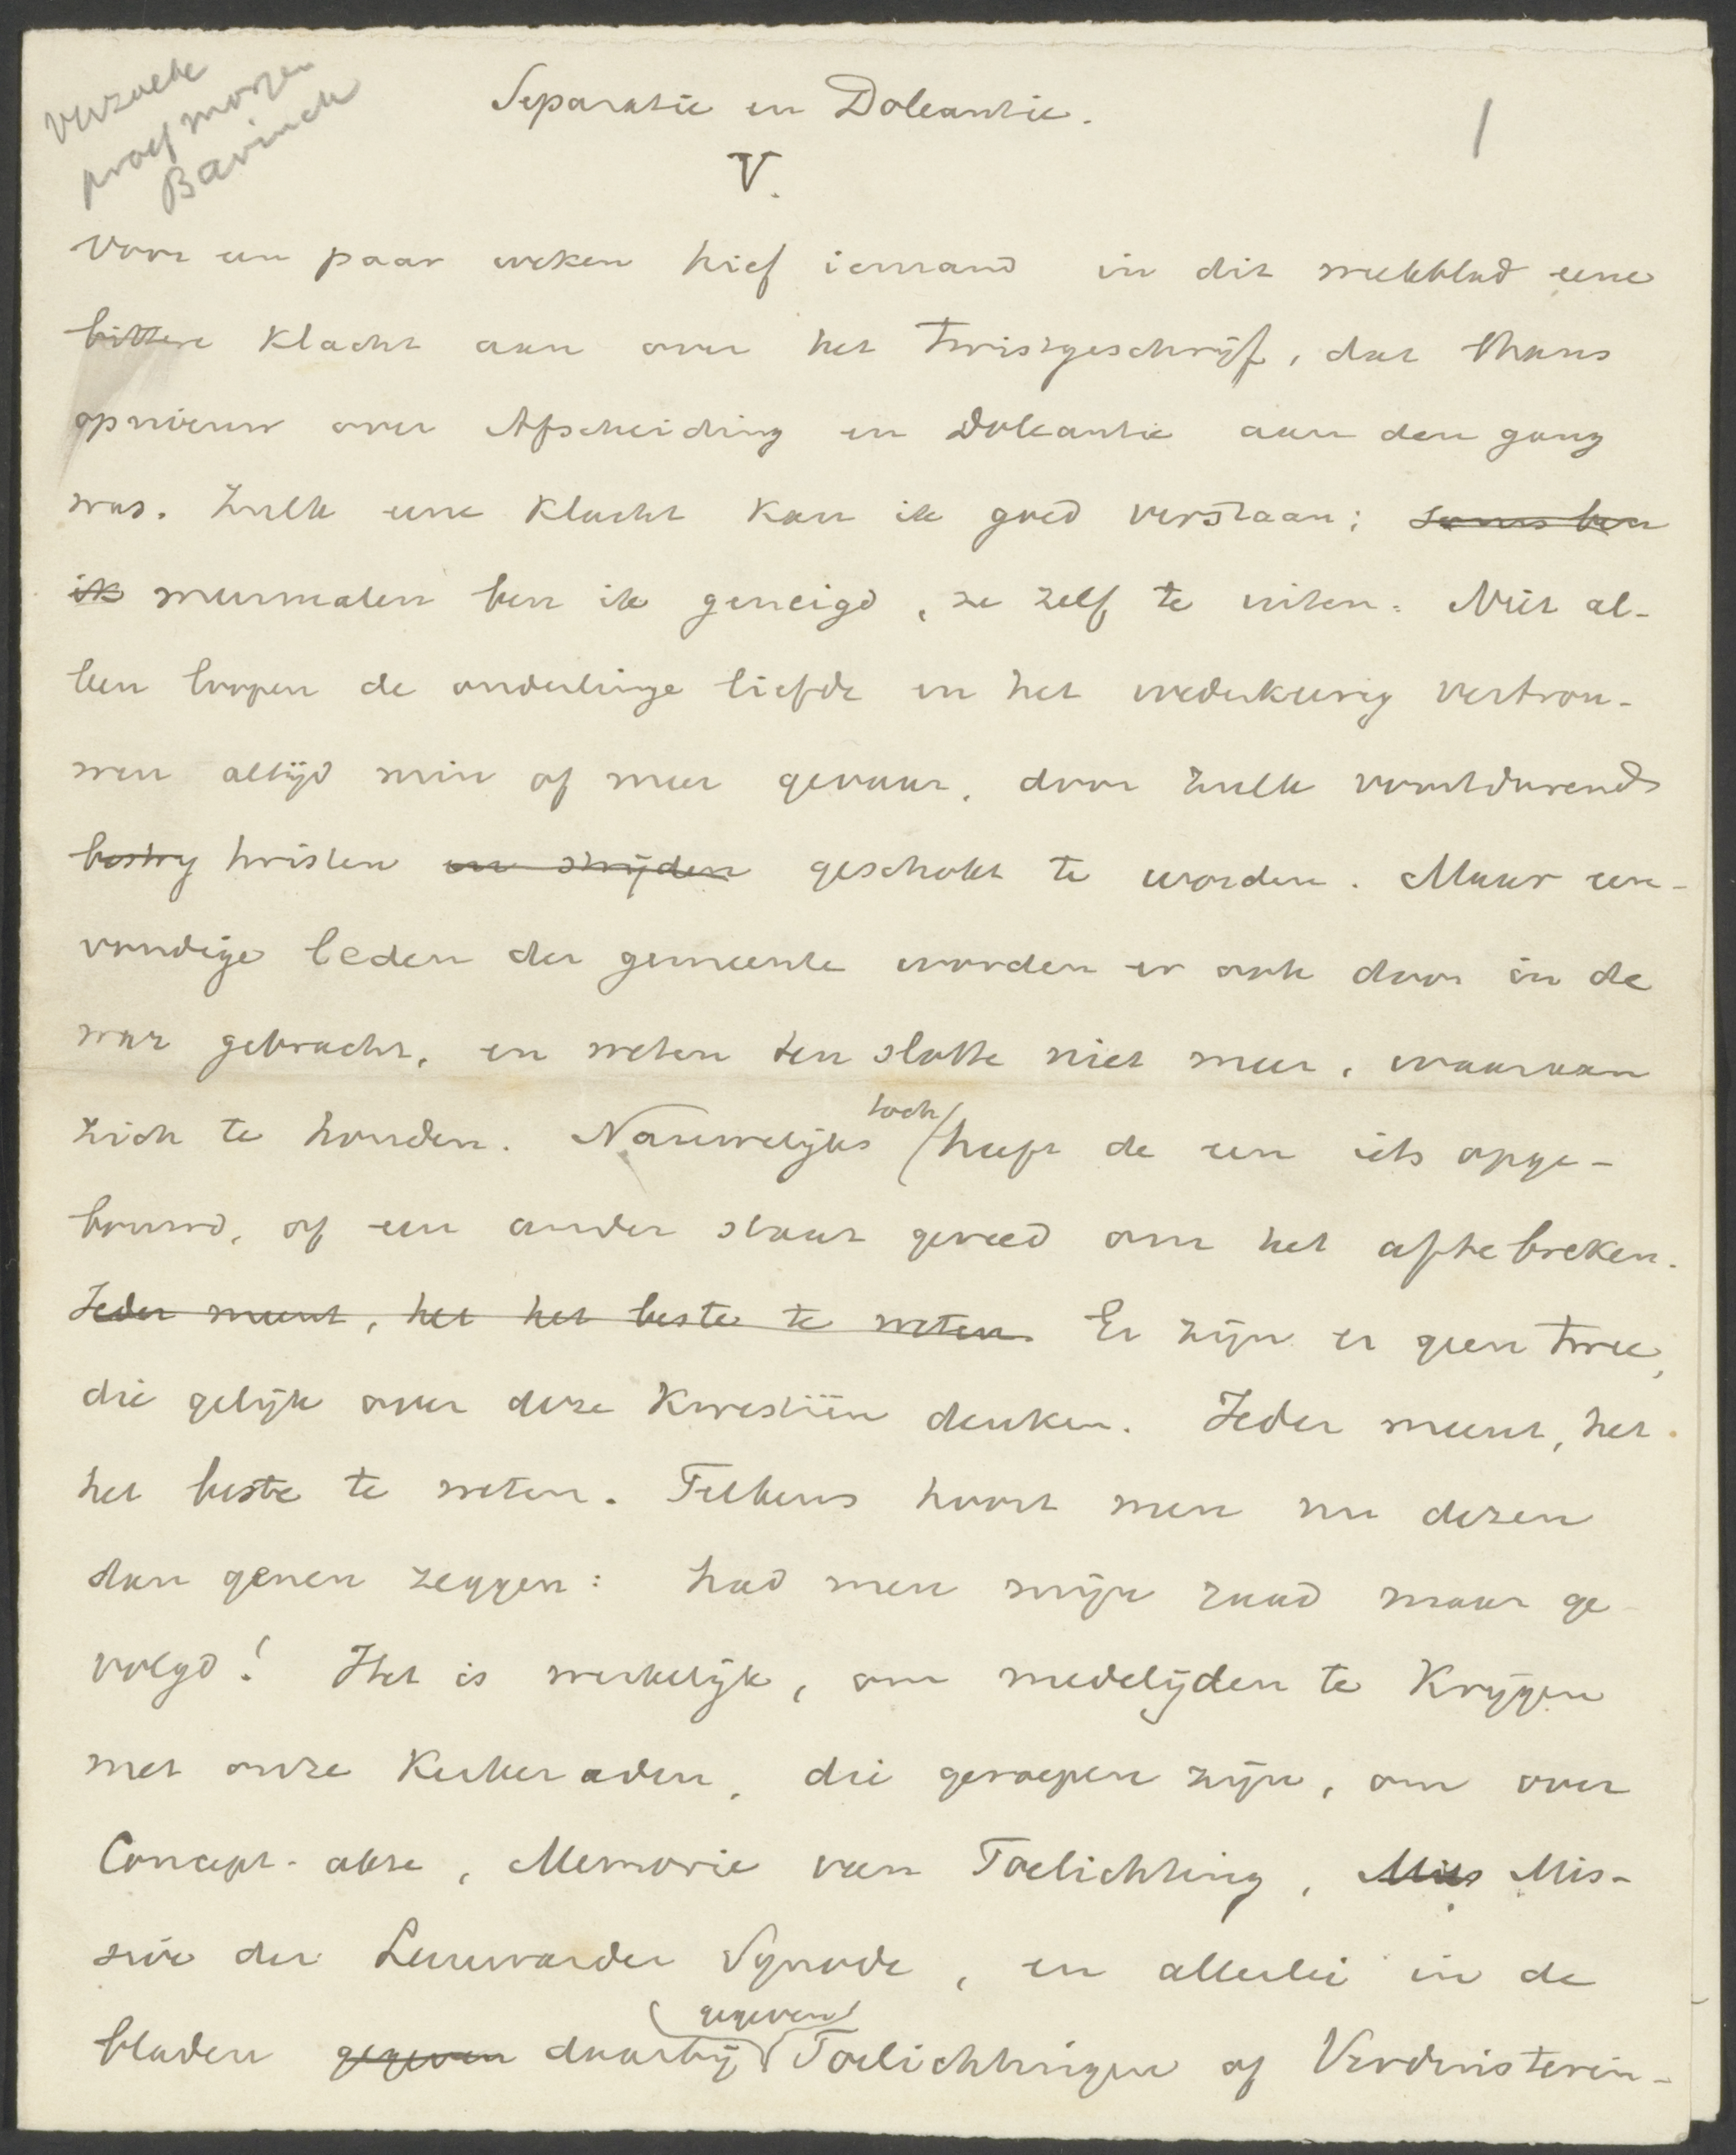 verzoeke
proef morgen
Bavinck
Separatie en Doleantie.
1
V.
Voor een paar weken hief iemand in dit weekblad eene
bittere klacht aan over het twistgeschrijf, dat thans
opnieuw over Afscheiding en Doleantie aan den gang
was. Zulk eene klacht kan ik goed verstaan; soms ben
ik meermalen ben ik geneigd, ze zelf te uiten. Niet al-
leen loopen de onderlinge liefde en het wederkeerig vertrou-
wen altijd min of meer gevaar, door zulk voortdurend
bestry twisten en strijden geschokt te worden. Maar een-
voudige leden der gemeente worden er ook door in de
war gebracht, en weten ten slotte niet meer, waaraan
zich te houden. Nauwelijks toch heeft de een iets opge-
bouwd, of een ander staat gereed om het afte breken.
Ieder meent, het het beste te weten. Er zijn er geen twee,
die gelijk over deze kwestiën denken. Ieder meent, het
het beste te weten. Telkens hoort men nu dezen
dan genen zeggen: had men mijn raad maar ge
volgd! Het is werkelijk, om medelijden te krijgen
met onze kerkeraden, die geroepen zijn, om over
Concept-akte, Memorie van Toelichting, Miss Mis-
sive der Leeuwarder Synode, en allerlei in de
bladen gegeven daarbij gegeven Toelichtingen of Verduisterin-